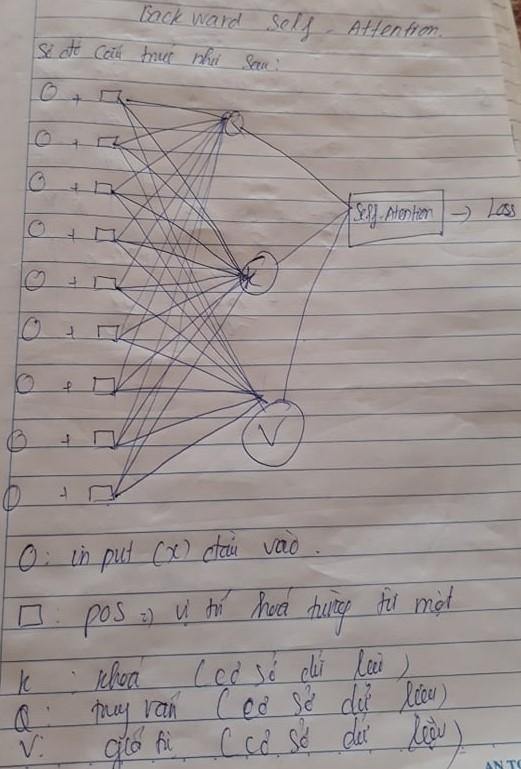 Backward Self-Attention.
Sơ đồ cấu trúc như sau:
O + □ Q
O + □
O + □
O + □ Self-Atention → Loss
O + □ K
O + □
O + □
O + □ V
O + □
O: in put (x) đầu vào.
□: pos => vị trí hoá từng từ một
K: khoá (cơ sở dữ liệu)
Q: truy vấn (cơ sở dữ liệu)
V: giá trị (cơ sở dữ liệu)